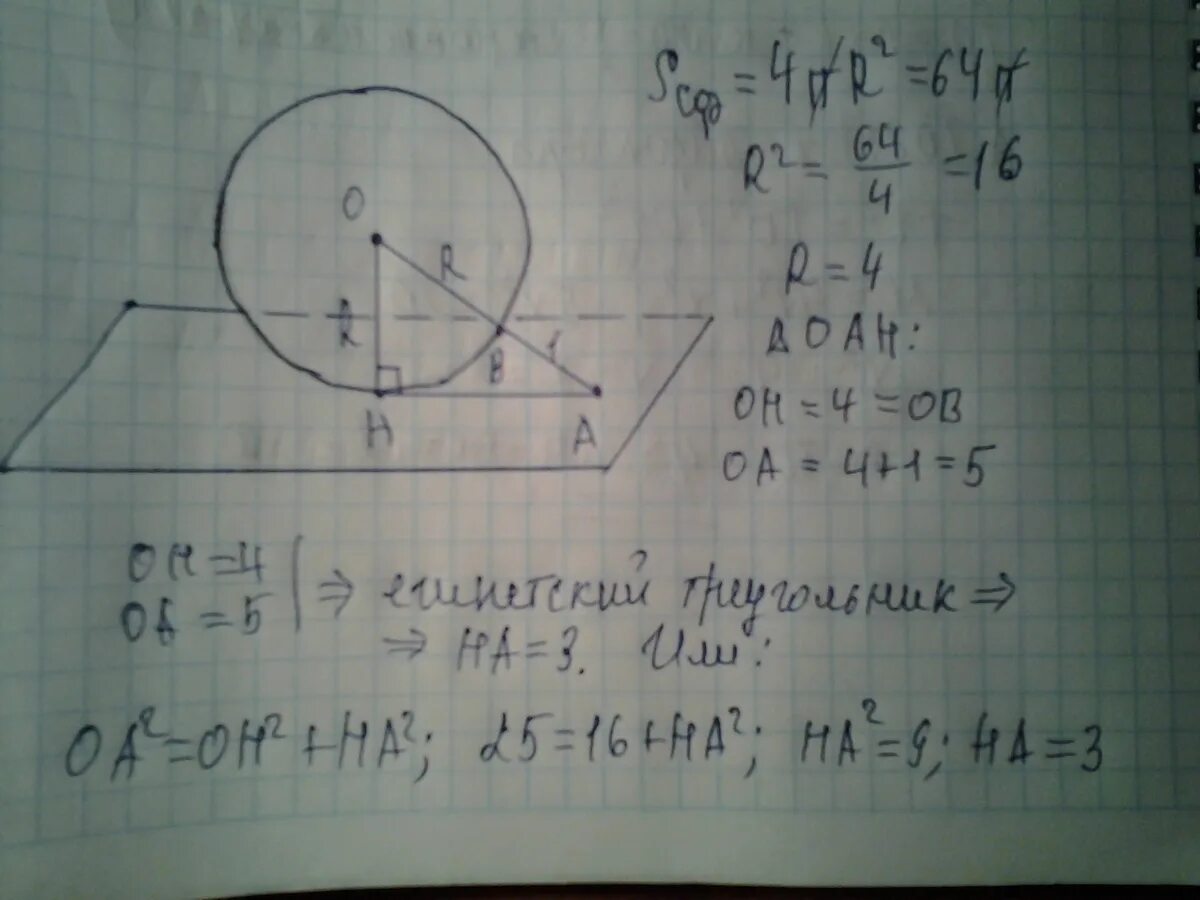 Sсф = 4πR² = 64π
R² = 64/4 = 16
R = 4
Δ OAH:
OH = 4 = OB
OA = 4+1 = 5
O
R
R
1
B
H
A
OH = 4
OA = 5 | ⇒ египетский треугольник ⇒
⇒ HA = 3. Или:
OA² = OH² + HA²; 25 = 16 + HA²; HA² = 9; HA = 3